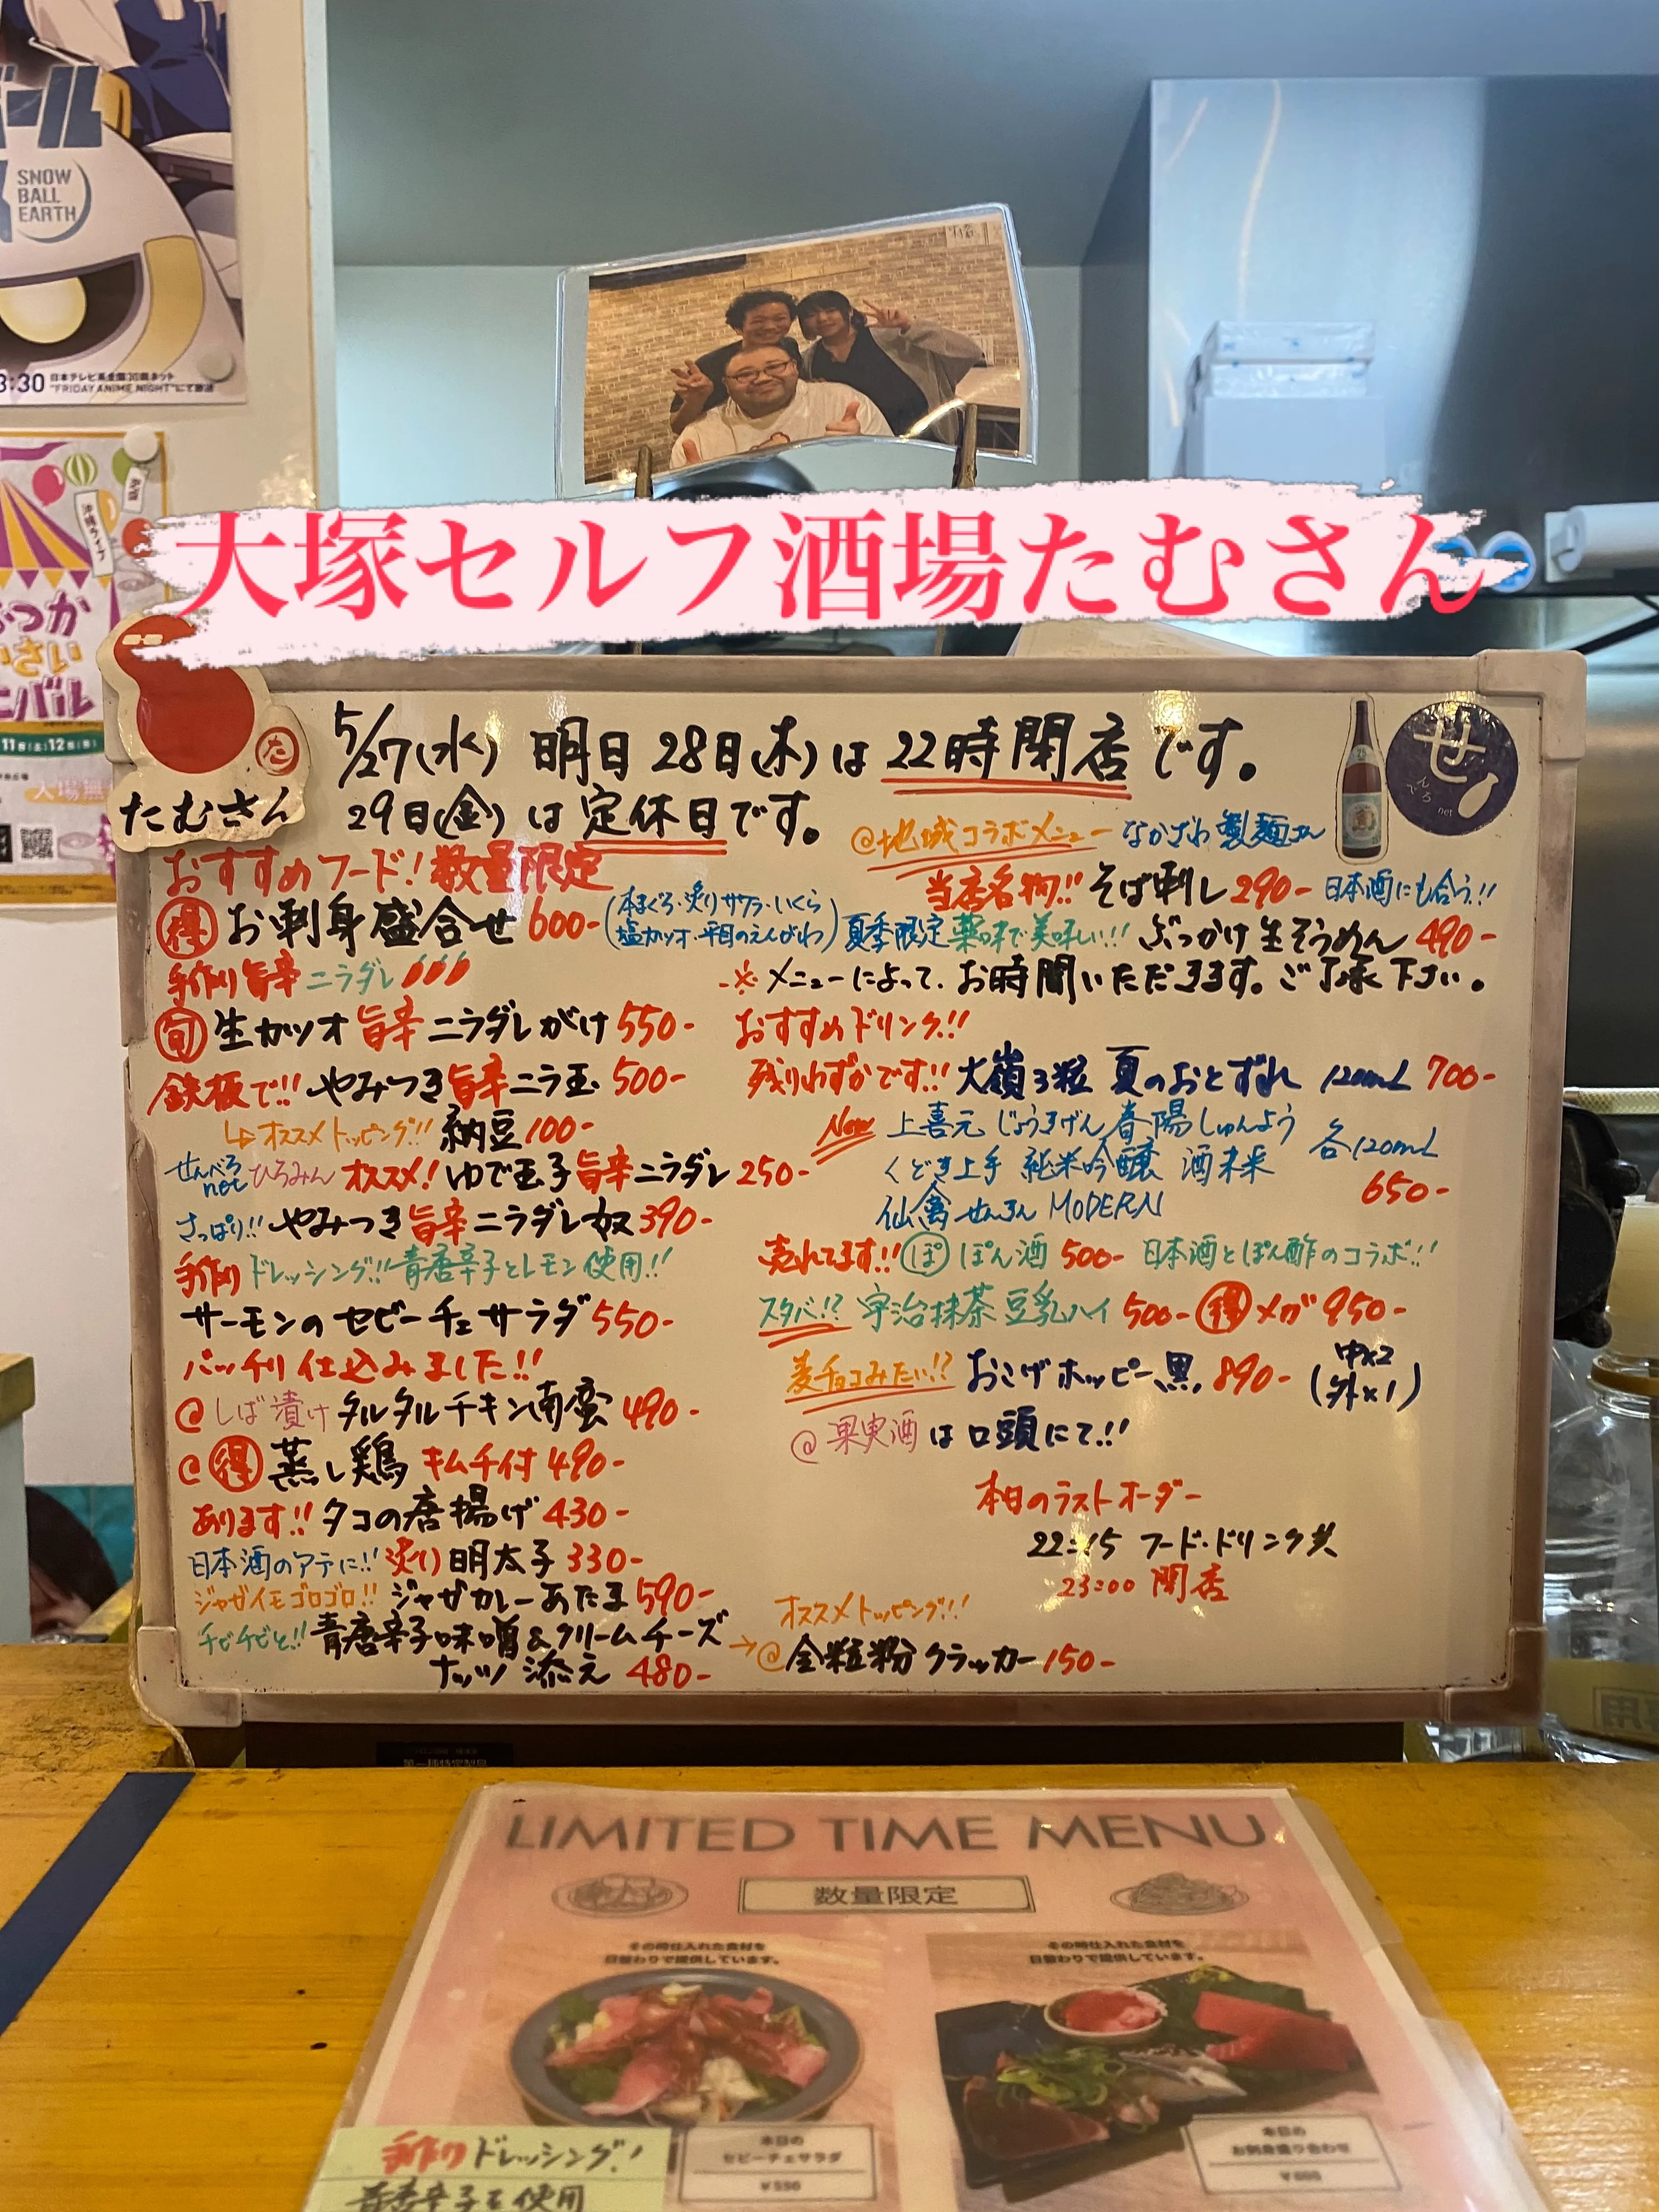 ール
SNOW
BALL
EARTH
3:30 日本テレビ系全国30局ネット
"FRIDAY ANIME NIGHT"にて放送
大塚セルフ酒場たむさん
た
たむさん
せ
5/27(水) 明日28日(木)は22時閉店です。
29日(金)は定休日です。
おすすめフード!数量限定
得 お刺身盛合せ 600-(本まぐろ・炙りサワラ・いくら
塩カツオ・平目のえんがわ)
手作り旨辛ニラダレ
旬 生カツオ旨辛ニラダレがけ550-
鉄板で!!やみつき旨辛ニラ玉500-
↳オススメトッピング!!納豆100-
せんべろnet ひろみんオススメ!ゆで玉子旨辛ニラダレ250-
さっぱり!!やみつき旨辛ニラダレ奴390-
手作りドレッシング!!青唐辛子とレモン使用!!
サーモンのセビーチェサラダ550-
バッチリ仕込みました!!
@しば漬けタルタルチキン南蛮490-
@得 蒸し鶏キムチ付490-
あります!!タコの唐揚げ430-
日本酒のアテに!!炙り明太子330-
ジャガイモゴロゴロ!!ジャガカレーあたま590-
チビチビと!!青唐辛子味噌&クリームチーズ
ナッツ添え480-
@地域コラボメニュー なかざわ製麺さん
当店名物!!そば刺し290- 日本酒にも合う!!
夏季限定薬味で美味しい!!ぶっかけ生そうめん490-
-※メニューによって、お時間いただきます。ご了承下さい。
おすすめドリンク!!
残りわずかです!!大嶺3粒 夏のおとずれ 120mL 700-
New 上喜元 じょうきげん 春陽しゅんよう
くどき上手 純米吟醸 酒未来 各120mL
仙禽せんきんMODERN 650-
売れてます!!ぽ ぽん酒500- 日本酒とぽん酢のコラボ!!
スタバ!?宇治抹茶豆乳ハイ500-得 メガ950-
麦チョコみたい!?おこげホッピー黒890- (中×2
外×1)
@果実酒は口頭にて!!
本日のラストオーダー
22:15 フード・ドリンク共
23:00 閉店
オススメトッピング!!!
→@全粒粉クラッカー150-
LIMITED TIME MENU
数量限定
その時仕入れた食材を
日替わりで提供しています。
その時仕入れた食材を
日替わりで提供しています。
本日の
セビーチェサラダ
¥550
本日の
お刺身盛り合わせ
¥600
手作りドレッシング!
青唐辛子を使用